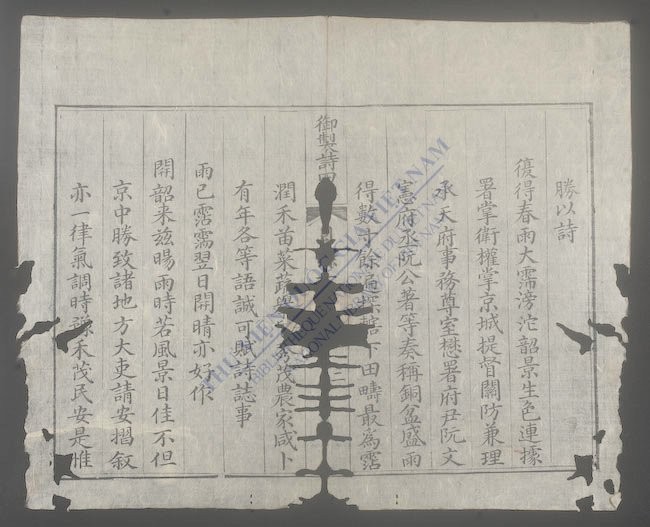 勝以詩
優得春雨大霈滂沱韶景生色連據
署掌衛權掌京城提督關防兼理
承天府事務尊室懋署府尹阮文
憲府丞阮公著等奏稱銅盆盛雨
得數寸餘遍探下田疇最為霑
御製詩四
潤禾苗菜蔬茂農家咸卜
有年各等語誠可財詩誌事
雨已霑霈翌日開晴亦好作
開韶来茲暘雨時若風景日佳不但
京中勝致諸地方大吏請安摺叙
亦一律氣調時豫禾茂民安是惟